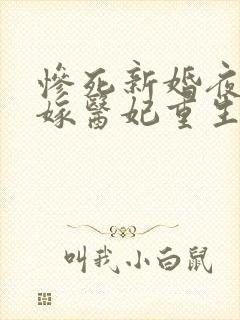 慘死新婚夜
嫁醫妃重生
叫我小白鼠